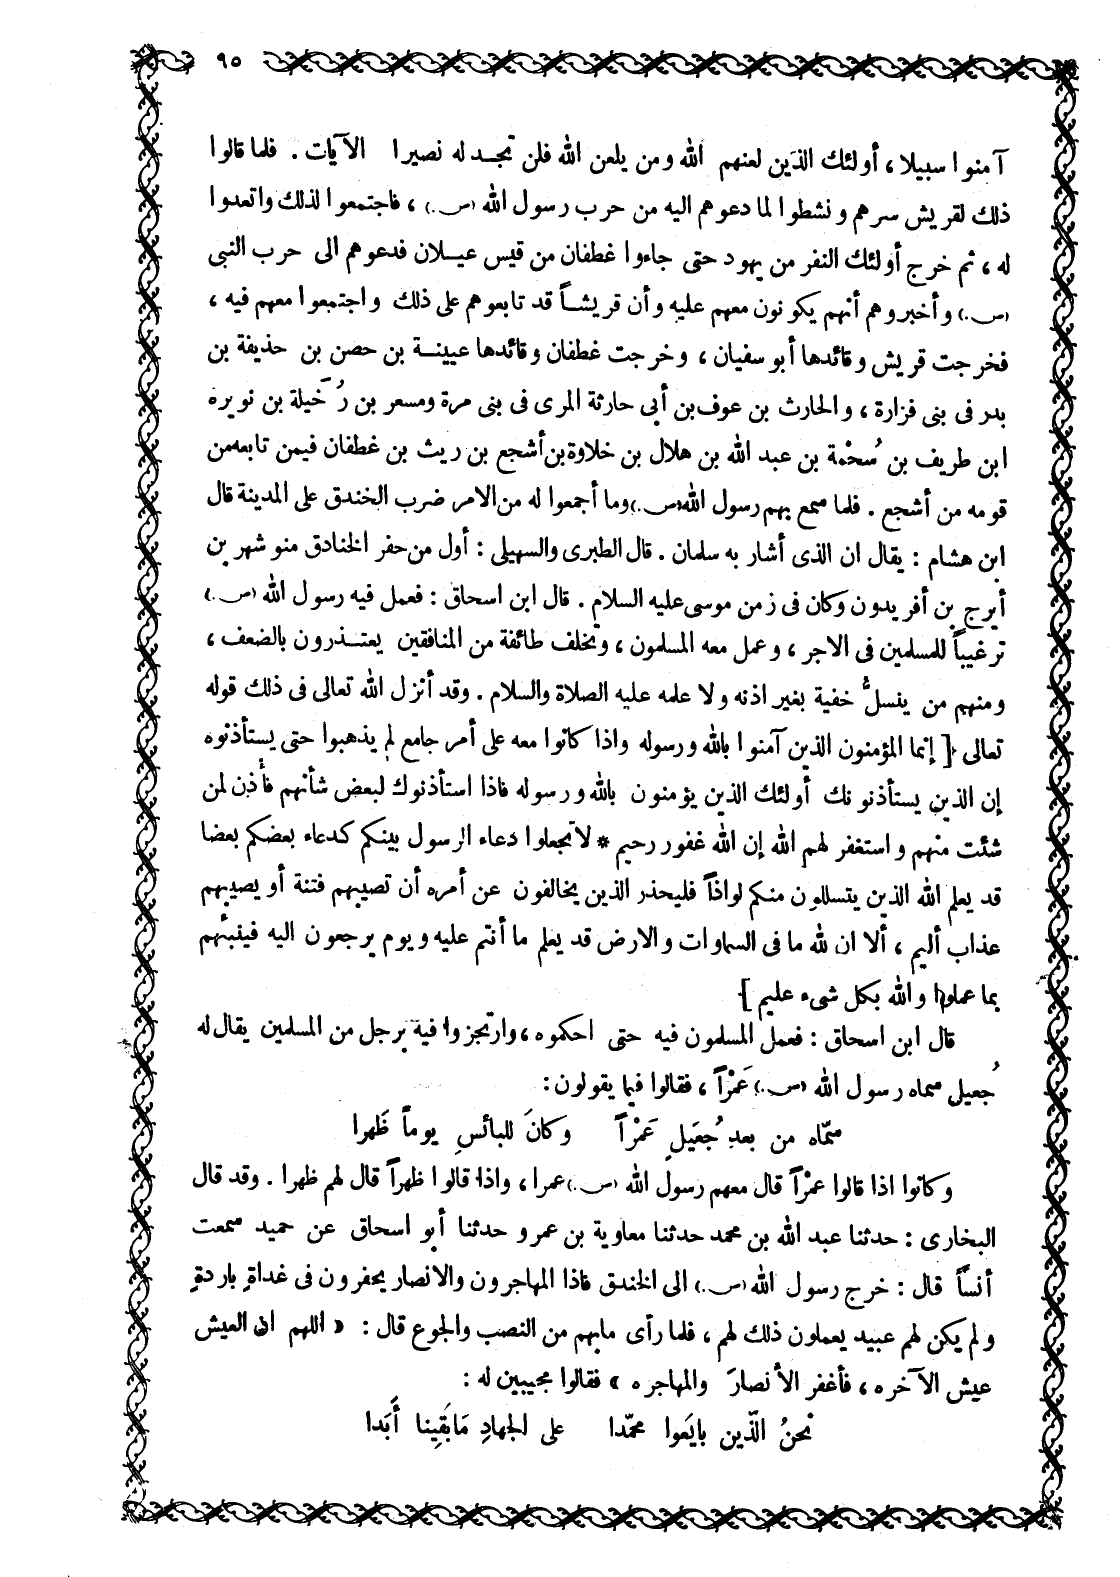 ٩٥
آمنوا سبيلا ، أولئك الذين لعنهم الله ومن يلعن الله فلن تجد له نصيرا الآيات . فلما قالوا
ذلك لقريش سرهم ونشطوا لما دعوهم اليه من حرب رسول الله (س.) ، فاجتمعوا لذلك واتعدوا
له ، ثم خرج أولئك النفر من يهود حتى جاءوا غطفان من قيس عيلان فدعوهم الى حرب النبي
(س.) وأخبروهم أنهم يكونون معهم عليه وأن قريشاً قد تابعوهم على ذلك واجتمعوا معهم فيه ،
فخرجت قريش وقائدها أبو سفيان ، وخرجت غطفان وقائدها عيينة بن حصن بن حذيفة بن
بدر فى بنى فزارة ، والحارث بن عوف بن أبي حارثة المرى فى بنى مرة ومسعر بن رُخيلة بن نويره
ابن طريف بن سُحْمة بن عبد الله بن هلال بن خلاوة بن أشجع بن ريث بن غطفان فيمن تابعه من
قومه من أشجع . فلما سمع بهم رسول الله (س.) وما أجمعوا له من الامر ضرب الخندق على المدينة قال
ابن هشام : يقال ان الذى أشار به سلمان . قال الطبرى والسهيلى : أول من حفر الخنادق منوشهر بن
أيرج بن أفريدون وكان فى زمن موسى عليه السلام . قال ابن اسحاق : فعمل فيه رسول الله (س.)
ترغيباً للمسلمين فى الاجر ، وعمل معه المسلمون ، وتخلف طائفة من المنافقين يعتذرون بالضعف ،
ومنهم من ينسلُّ خفية بغير اذنه ولا علمه عليه الصلاة والسلام . وقد أنزل الله تعالى فى ذلك قوله
تعالى [ إنما المؤمنون الذين آمنوا بالله ورسوله واذا كانوا معه على أمر جامع لم يذهبوا حتى يستأذنوه
إن الذين يستأذنونك أولئك الذين يؤمنون بالله ورسوله فاذا استأذنوك لبعض شأنهم فأذن لمن
شئت منهم واستغفر لهم الله إن الله غفور رحيم * لا تجعلوا دعاء الرسول بينكم كدعاء بعضكم بعضا
قد يعلم الله الذين يتسللون منكم لواذاً فليحذر الذين يخالفون عن أمره أن تصيبهم فتنة أو يصيبهم
عذاب أليم ، ألا ان لله ما فى السماوات والارض قد يعلم ما أنتم عليه ويوم يرجعون اليه فينبئهم
بما عملوا والله بكل شىء عليم ]
قال ابن اسحاق : فعمل المسلمون فيه حتى احكموه ، وارتجزوا فيه برجل من المسلمين يقال له
جُعيل سماه رسول الله (س.) عَمْراً ، فقالوا فيما يقولون :
سمّاه من بعدِ جُعَيلٍ عَمْراً وكانَ للبائسِ يوماً ظَهرا
وكانوا اذا قالوا عمْراً قال معهم رسول الله (س.) عمرا ، واذا قالوا ظهراً قال لهم ظهرا . وقد قال
البخارى : حدثنا عبد الله بن محمد حدثنا معاوية بن عمرو حدثنا أبو اسحاق عن حميد سمعت
أنساً قال : خرج رسول الله (س.) الى الخندق فاذا المهاجرون والانصار يحفرون فى غداةٍ باردةٍ
ولم يكن لهم عبيد يعملون ذلك لهم ، فلما رأى مابهم من النصب والجوع قال : « اللهم ان العيش
عيش الآخره ، فأغفر الأنصارَ والمهاجره » فقالوا مجيبين له :
نحنُ الّذين بايَعوا محمّدا على الجهادِ مَابَقِينا أَبَدا